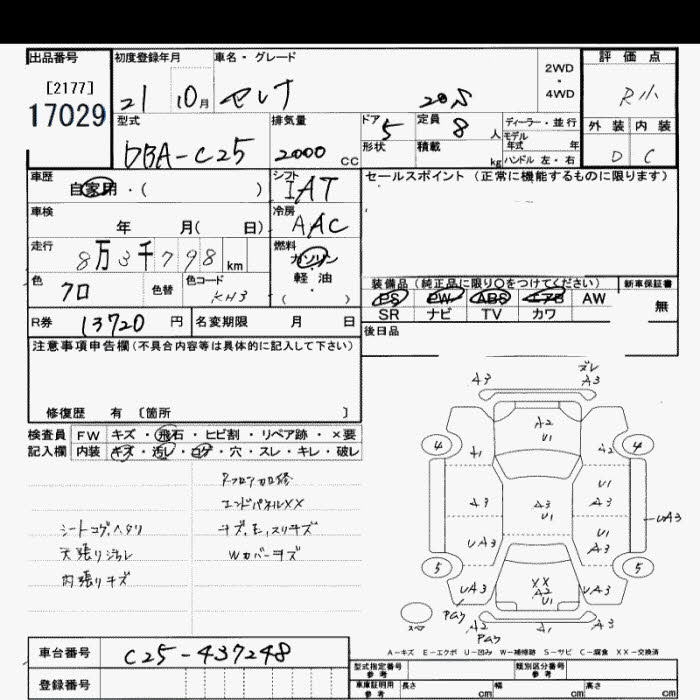 出品番号
[2177]
17029
初度登録年月
21 10月
車名・グレード
セレナ 20S
2WD
・
4WD
評価点
R小
外装 内装
D C
型式
DBA-C25
排気量
2000 CC
ドア 5
形状
定員 8 人
積載 kg
ディーラー・並行
モデル
年式 年
ハンドル 左・右
車歴
自家用・( )
シフト
IAT
セールスポイント (正常に機能するものに限ります)
車検
年 月( 日)
冷房
AAC
走行
8万3千798 km
燃料
ガソリン
・
軽油
( )
色
クロ
色替
色コード
KH3
装備品(純正品に限り○をつけてください)
新車保証書
PS PW ABS エアB AW
SR ナビ TV カワ
無
R券 13720 円
名変期限 月 日
後日品
注意事項申告欄(不具合内容等は具体的に記入して下さい)
修復歴 有 〔箇所 〕
検査員
記入欄
FW キズ・飛石・ヒビ割・リペア跡・×要
内装 キズ・汚レ・コゲ・穴・スレ・キレ・破レ
エンドパネルXX
シートコゲ,ヘタリ
キズ,モ,スリキズ
天張り汚レ
Wカバーキズ
内張りキズ
A3 ズレ A3
A2
U1
4 4
A1 A2
A3 A3 U1 U1 A3
UA3 U1 A3
UA3
5 5
UA3 XX A2 U1 UA3
スペア
A2 A1 A3
A-キズ E-エクボ U-凹み W-補修跡 S-サビ C-腐食 XX-交換済
車台番号 C25-437248
登録番号
型式指定番号
参考
類別区分番号
参考
車庫証明用
参考
長さ cm 幅 cm 高さ cm